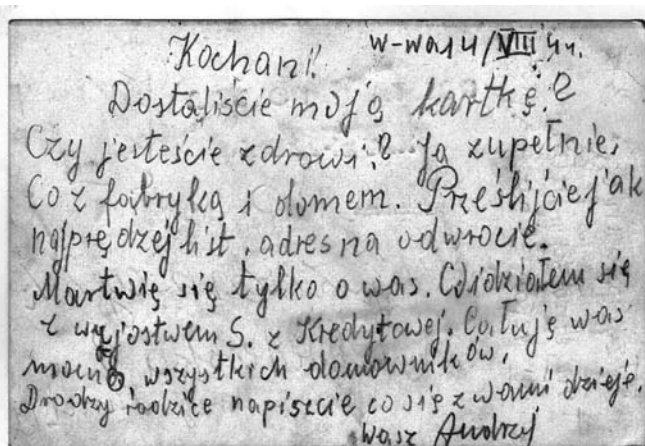 Kochani! W-wa 14/VIII 44.
Dostaliście moją kartkę?
Czy jesteście zdrowi? Ja zupełnie.
Co z fabryką i domem. Prześlijcie jak
najprędzej list, adres na odwrocie.
Martwię się tylko o was. Widziałem się
z wujostwem S. z Kredytowej. Całuję was
mocno, wszystkich domowników.
Drodzy rodzice napiszcie co się z wami dzieje.
Wasz Andrzej